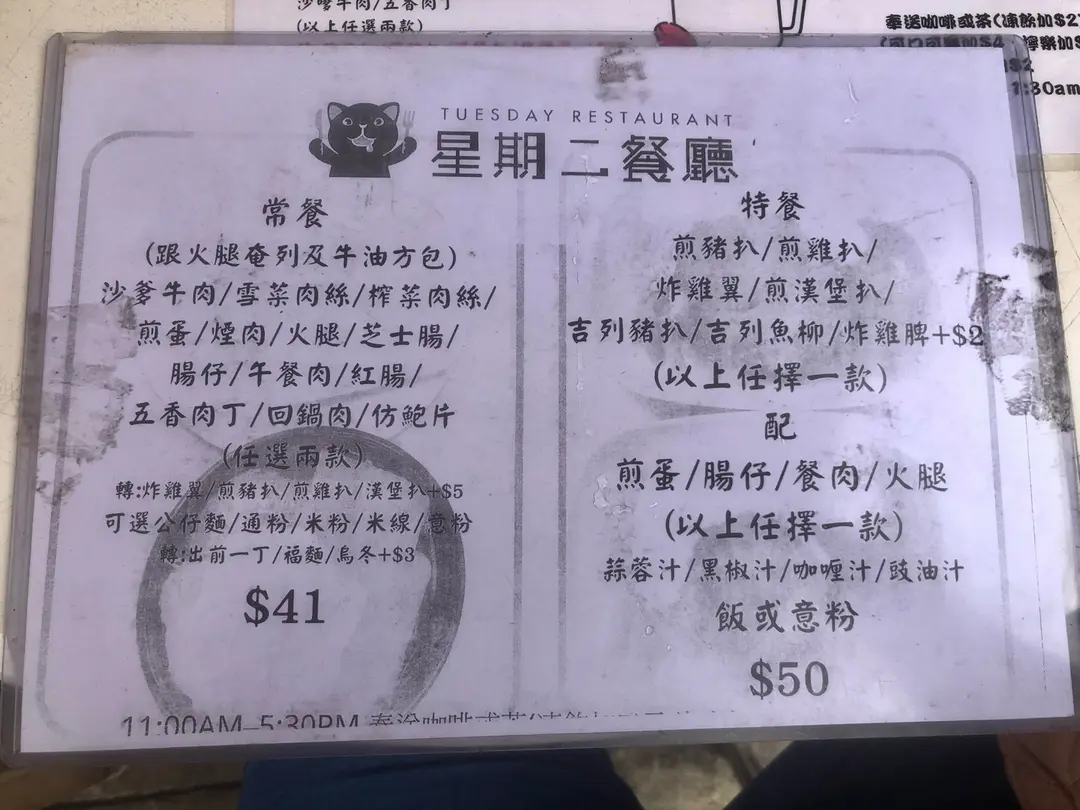 沙嗲牛肉/五香肉丁
(以上任選兩款)
奉送咖啡或茶(凍飲加$2
1:30am
TUESDAY RESTAURANT
星期二餐廳
常餐
(跟火腿奄列及牛油方包)
沙爹牛肉/雪菜肉絲/榨菜肉絲/
煎蛋/煙肉/火腿/芝士腸/
腸仔/午餐肉/紅腸/
五香肉丁/回鍋肉/仿鮑片
(任選兩款)
轉:炸雞翼/煎豬扒/煎雞扒/漢堡扒+$5
可選公仔麵/通粉/米粉/米線/意粉
轉:出前一丁/福麵/烏冬+$3
$41
特餐
煎豬扒/煎雞扒/
炸雞翼/煎漢堡扒/
吉列豬扒/吉列魚柳/炸雞脾+$2
(以上任擇一款)
配
煎蛋/腸仔/餐肉/火腿
(以上任擇一款)
蒜蓉汁/黑椒汁/咖喱汁/豉油汁
飯或意粉
$50
11:00AM-5:30PM 奉送咖啡或茶